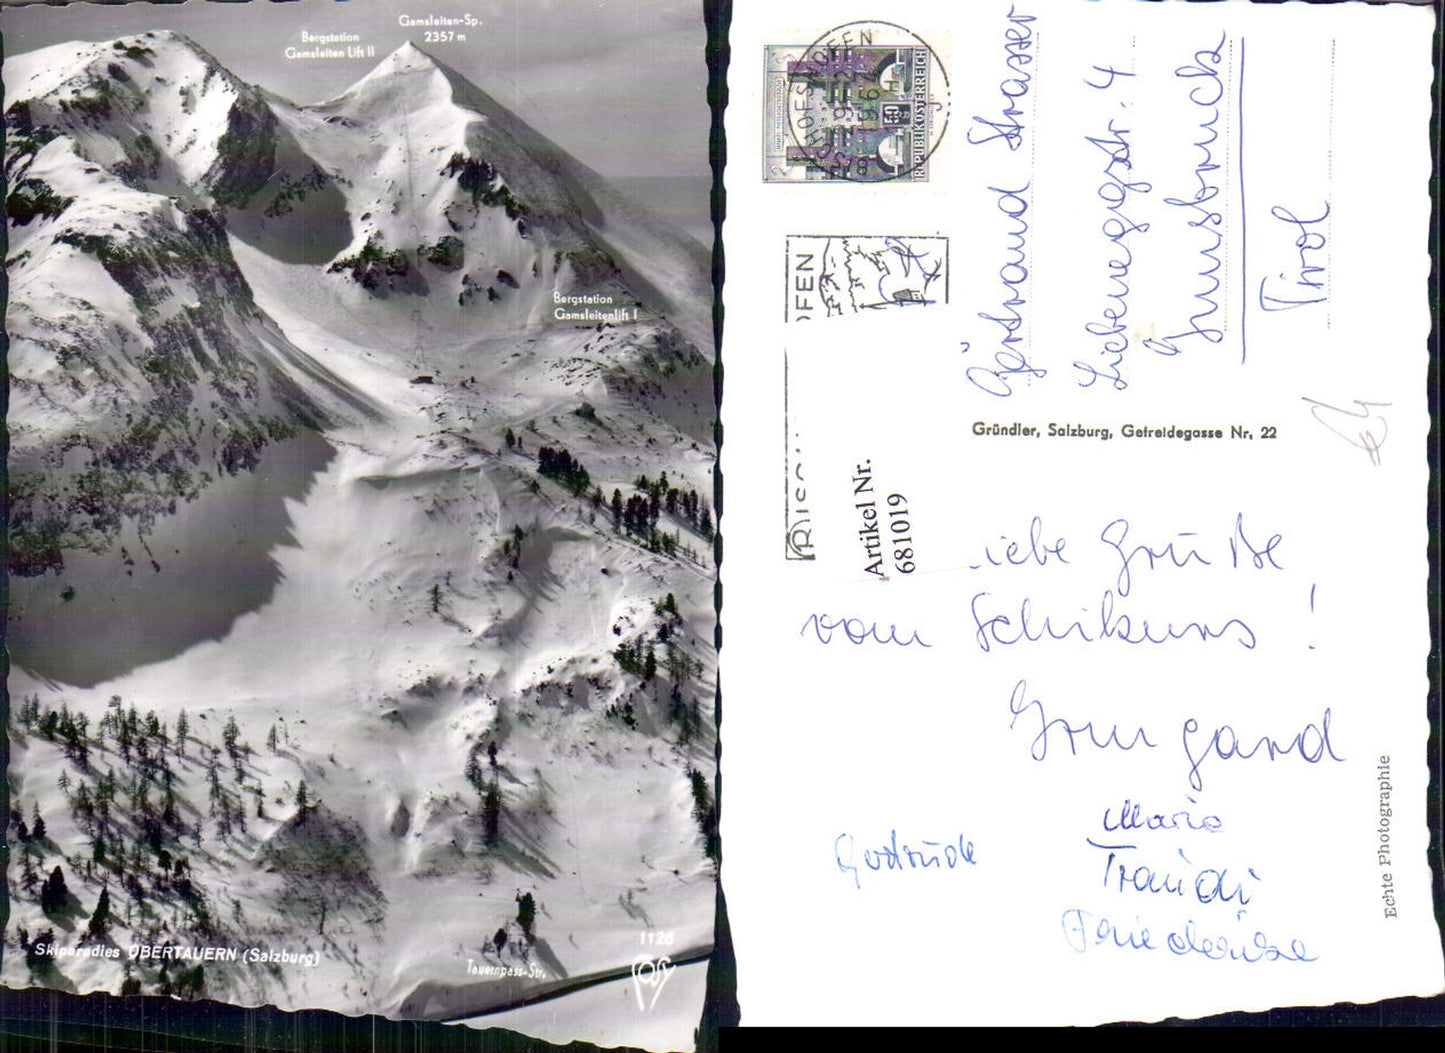 Gamsleiten-Sp.
2357 m
Bergstation
Gamsleiten Lift II
Bergstation
Gamsleitenlift I
Skiparadies OBERTAUERN (Salzburg)
Tauernpass-Str.
1126
COSY
REPUBLIK ÖSTERREICH
50
BISCHOFSHOFEN
OFEN
Gertraud Strasser
Liebeneggstr. 4
Innsbruck
Tirol
Gründler, Salzburg, Getreidegasse Nr. 22
Artikel Nr.
681019
Liebe Grüße
vom Schikurs!
Irmgard
Maria
Traudi
Gertrude
Friederike
Echte Photographie